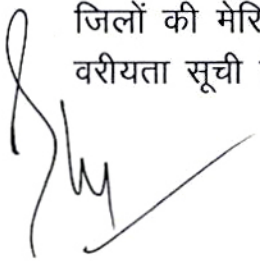 जिलों की मेरि
वरीयता सूची